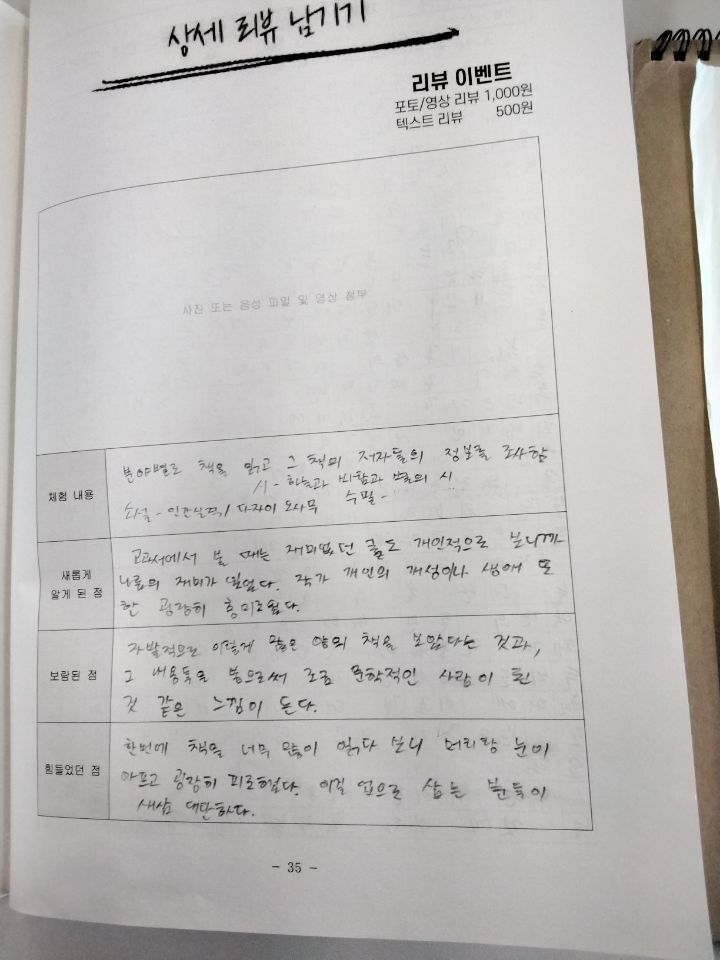 상세 리뷰 남기기
리뷰 이벤트
포토/영상 리뷰 1,000원
텍스트 리뷰 500원
사진 또는 음성 파일 및 영상 첨부
체험 내용
분야별로 책을 읽고 그 책의 저자들의 정보를 조사함
시 - 하늘과 바람과 별의 시
소설 - 인간실격/다자이 오사무 수필 -
새롭게
알게 된 점
교과서에서 볼 때는 재미없던 글도 개인적으로 보니까
나름의 재미가 있었다. 작가 개인의 개성이나 생애 또
한 굉장히 흥미로웠다.
보람된 점
자발적으로 이렇게 많은 양의 책을 보았다는 것과,
그 내용들을 봄으로써 조금 문학적인 사람이 된
것 같은 느낌이 든다.
힘들었던 점
한번에 책을 너무 많이 읽다 보니 머리랑 눈이
아프고 굉장히 피로했다. 이걸 업으로 삼는 분들이
새삼 대단하다.
- 35 -